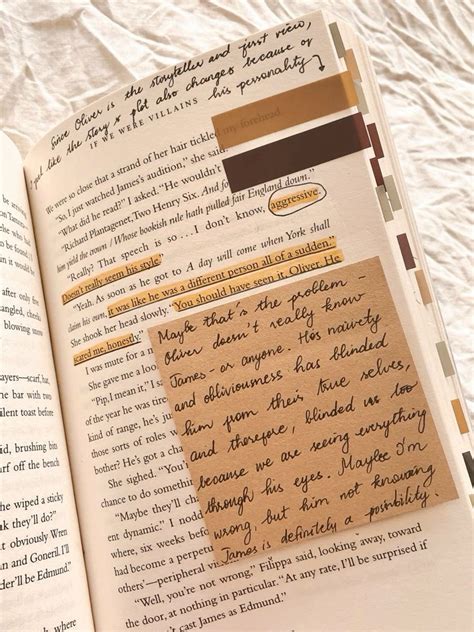 Since Oliver is the storyteller and first view,
I feel like the story & plot also changes because of
his personality
IF WE WERE VILLAINS
We were so close that a strand of her hair tickled my forehead.
"So, I just watched James's audition," she said.
"What did he read?" I asked. "He wouldn't
"Richard Plantagenet, Two Henry Six. And for thy
him yield the crown / Whose bookish rule hath pulled fair England down."
"Really? That speech is so . . . I don't know, aggressive.
Doesn't really seem his style."
"Yeah. As soon as he got to A day will come when York shall
claim his own, it was like he was a different person all of a sudden."
She shook her head slowly. "You should have seen it, Oliver. He
scared me, honestly."
I was mute for a m
She gave me a loo
"Pip, I mean it."
of the year he was
kind of range, he's ju
those sorts of roles w
bother? He's got a cha
She sighed. "You
chance to do somethin
"Maybe they'll c
ent dynamic." I two
where, six weeks befo
had become a perpetu
others'—peripheral visi
"Well, you're not wrong," Filippa said, looking away, toward
the door, at nothing in particular. "At any rate, I'll be surprised if
n't cast James as Edmund."
Maybe that's the problem -
Oliver doesn't really know
James - or anyone. His naivety
and obliviousness has blinded
him from their true selves,
and therefore, blinded us too
because we are seeing everything
through his eyes. Maybe I'm
wrong, but him not knowing
James is definitely a possibility.
after only five
chance they
blowing snow
ayers—scarf, hat,
he bar with two
silent toast before
d, brushing bits
urf off the bench
he wiped a sticky
k they'll do?"
t obviously Wren
n and Goneril. I'm
He'll be Edmund."